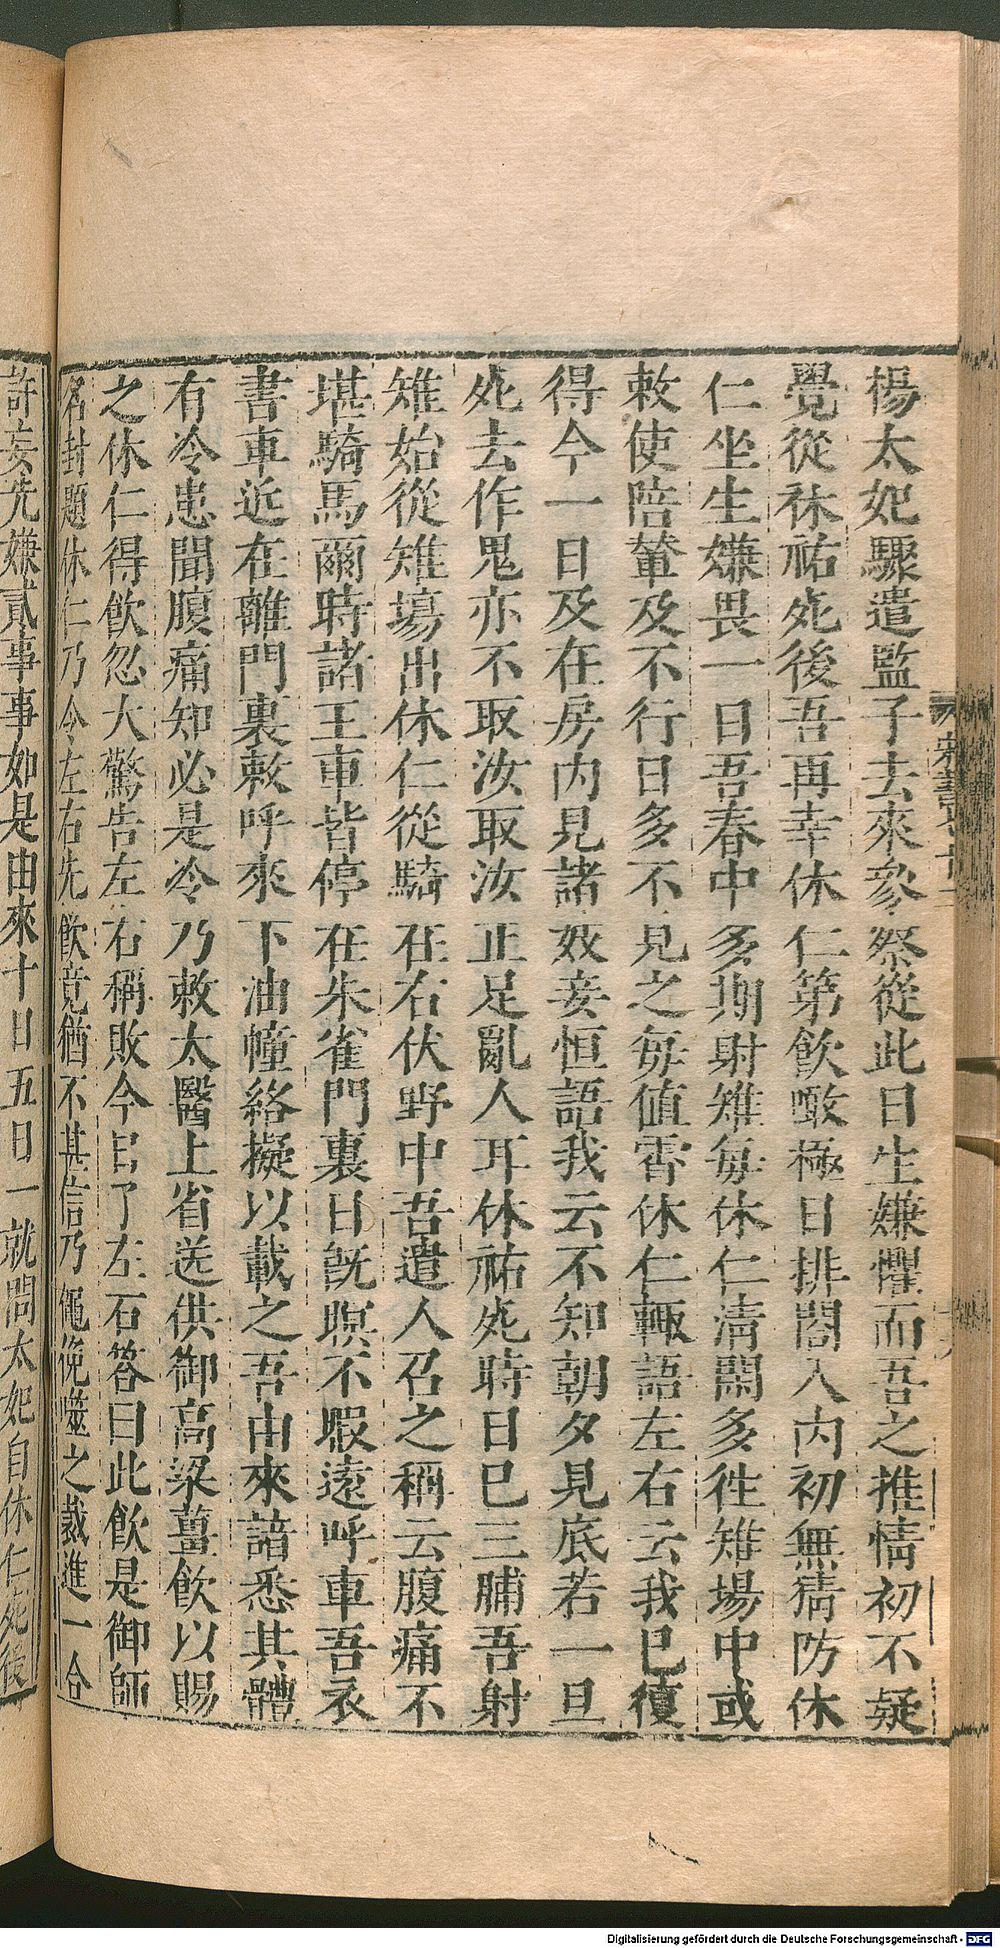 楊太妃驟遣監子去來參察從此日生嫌懼而吾之推情初不疑
覺從休祐死後吾再幸休仁第飲噉極日排閤入內初無猜防休
仁坐生嫌畏一日吾春中多期射雉每休仁清閑多徃雉場中或
敕使陪輦及不行日多不見之每值宵休仁輙語左右云我已復
得今一日及在房內見諸妓妾恒語我云不知朝夕見底若一旦
死去作鬼亦不取汝取汝正足亂人耳休祐死時日已三脯吾射
雉始從雉場出休仁從騎在右伏野中吾遣人召之稱云腹痛不
堪騎馬爾時諸王車皆停在朱雀門裏日旣暝不暇遠呼車吾衣
書車近在離門裏敕呼來下油幢絡擬以載之吾由來諳悉其體
有冷患聞腹痛知必是冷乃敕太醫上省送供御高梁薑飲以賜
之休仁得飲忽大驚告左右稱敗今日了左右答曰此飲是御師
名封題休仁乃令左右先飲竟猶不甚信乃僶俛噬之裁進一合
許妄先嫌貳事事如是由來十日五日一就問太妃自休仁死後
宋書
Digitalisierung gefördert durch die Deutsche Forschungsgemeinschaft - DFG